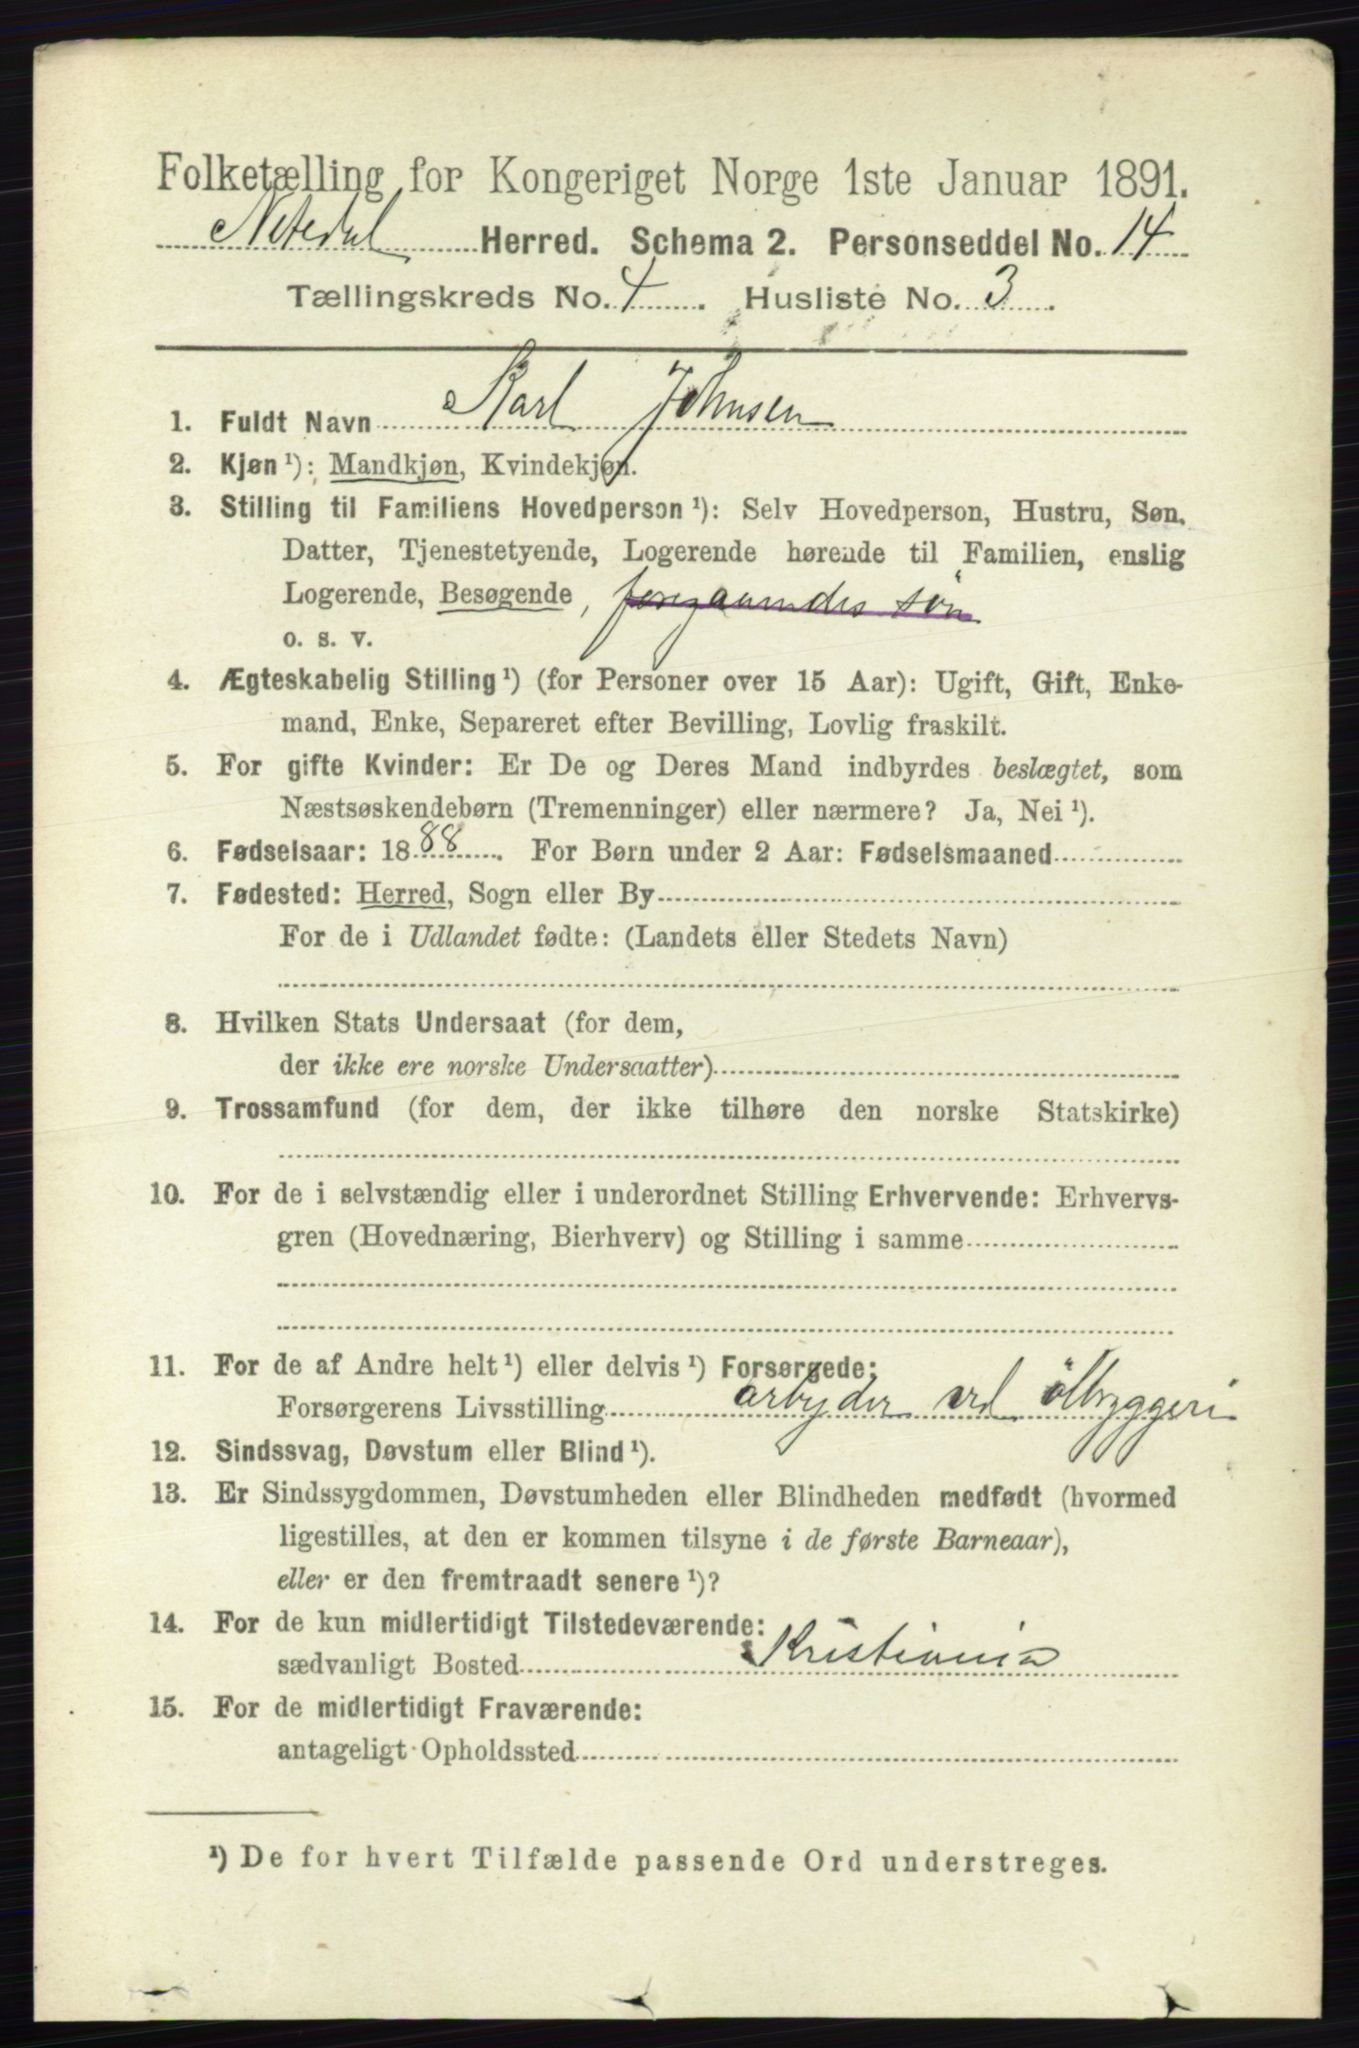 Folketælling for Kongeriget Norge 1ste Januar 1891.
Nitedal Herred. Schema 2. Personseddel No. 14
Tællingskreds No. 4. Husliste No. 3.
1. Fuldt Navn Karl Johnsen
2. Kjøn ¹): Mandkjøn, Kvindekjøn.
3. Stilling til Familiens Hovedperson ¹): Selv Hovedperson, Hustru, Søn,
Datter, Tjenestetyende, Logerende hørende til Familien, enslig
Logerende, Besøgende, foregaaendes søn
o. s. v.
4. Ægteskabelig Stilling ¹) (for Personer over 15 Aar): Ugift, Gift, Enke-
mand, Enke, Separeret efter Bevilling, Lovlig fraskilt.
5. For gifte Kvinder: Er De og Deres Mand indbyrdes beslægtet, som
Næstsøskendebørn (Tremenninger) eller nærmere? Ja, Nei ¹).
6. Fødselsaar: 1888. For Børn under 2 Aar: Fødselsmaaned
7. Fødested: Herred, Sogn eller By
For de i Udlandet fødte: (Landets eller Stedets Navn)
8. Hvilken Stats Undersaat (for dem,
der ikke ere norske Undersaatter)
9. Trossamfund (for dem, der ikke tilhøre den norske Statskirke)
10. For de i selvstændig eller i underordnet Stilling Erhvervende: Erhvervs-
gren (Hovednæring, Bierhverv) og Stilling i samme
11. For de af Andre helt ¹) eller delvis ¹) Forsørgede:
Forsørgerens Livsstilling arbyder ved ölbryggeri
12. Sindssvag, Døvstum eller Blind ¹).
13. Er Sindssygdommen, Døvstumheden eller Blindheden medfødt (hvormed
ligestilles, at den er kommen tilsyne i de første Barneaar),
eller er den fremtraadt senere ¹)?
14. For de kun midlertidigt Tilstedeværende:
sædvanligt Bosted Kristiania
15. For de midlertidigt Fraværende:
antageligt Opholdssted
¹) De for hvert Tilfælde passende Ord understreges.